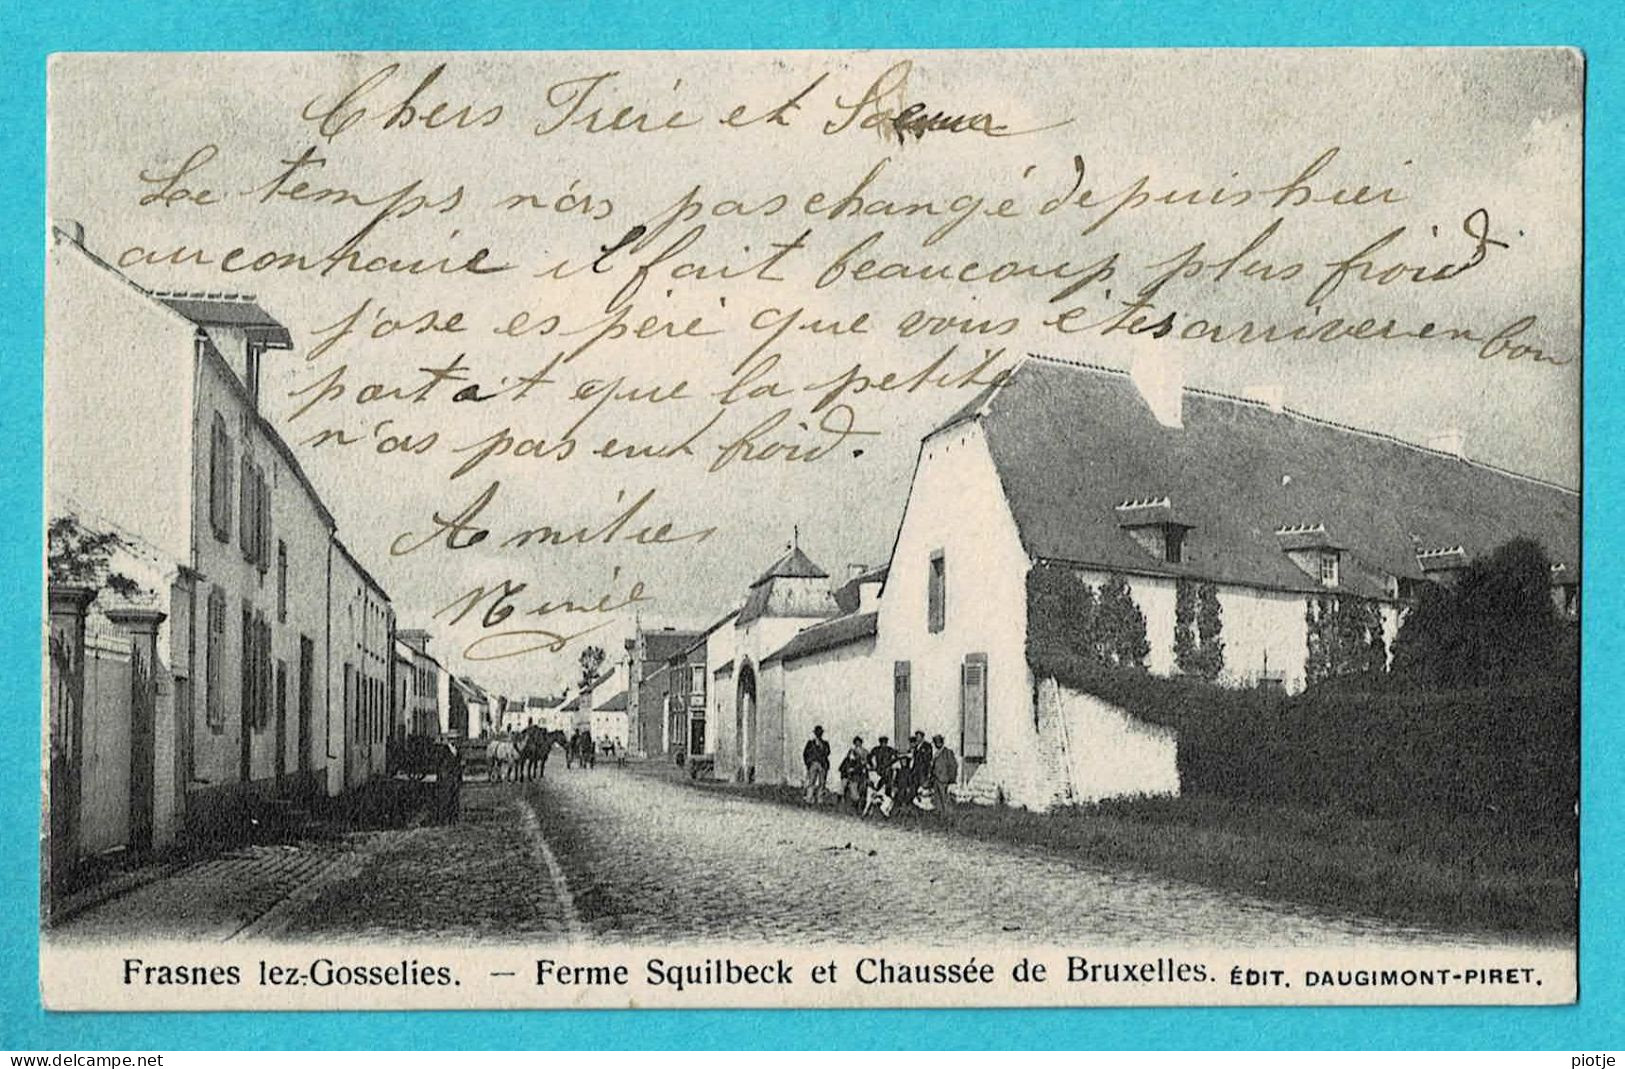 Chers Frère et Soeur
Le temps n'as pas changé depuis hier
au contraire il fait beaucoup plus froid
j'ose espéré que vous êtes arriver en bon
port at que la petite
n'as pas eut froid.
Amitiés
Frasnes lez-Gosselies. — Ferme Squilbeck et Chaussée de Bruxelles. ÉDIT. DAUGIMONT-PIRET.
www.delcampe.net
piotje